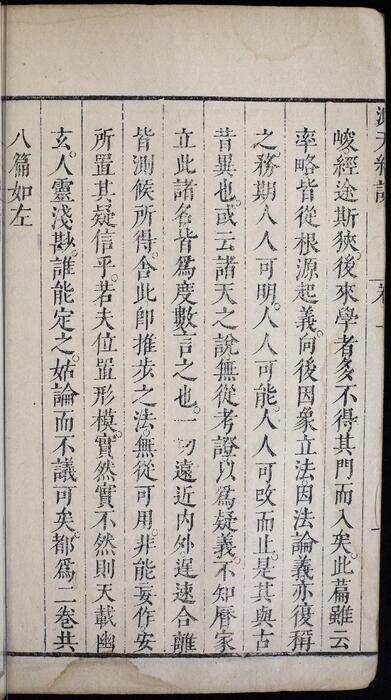 峻經途斯狹。後來學者多不得其門而入矣。此篇雖云
率略皆從根源起義。向後因象立法因法論義亦復稱
之。務期人人可明。人人可能。人人可改而止。是其與古
昔異也。或云諸天之說無從考證以爲疑義。不知曆家
立此諸名皆爲度數言之也。一切遠近內外遲速合離
皆測候所得。舍此卽推步之法。無從可用。非能妄作。安
所置其疑信乎。若夫位置形模。實然實不然則天載幽
玄。人靈淺尠。誰能定之。姑論而不議可矣。都爲二卷共
八篇如左